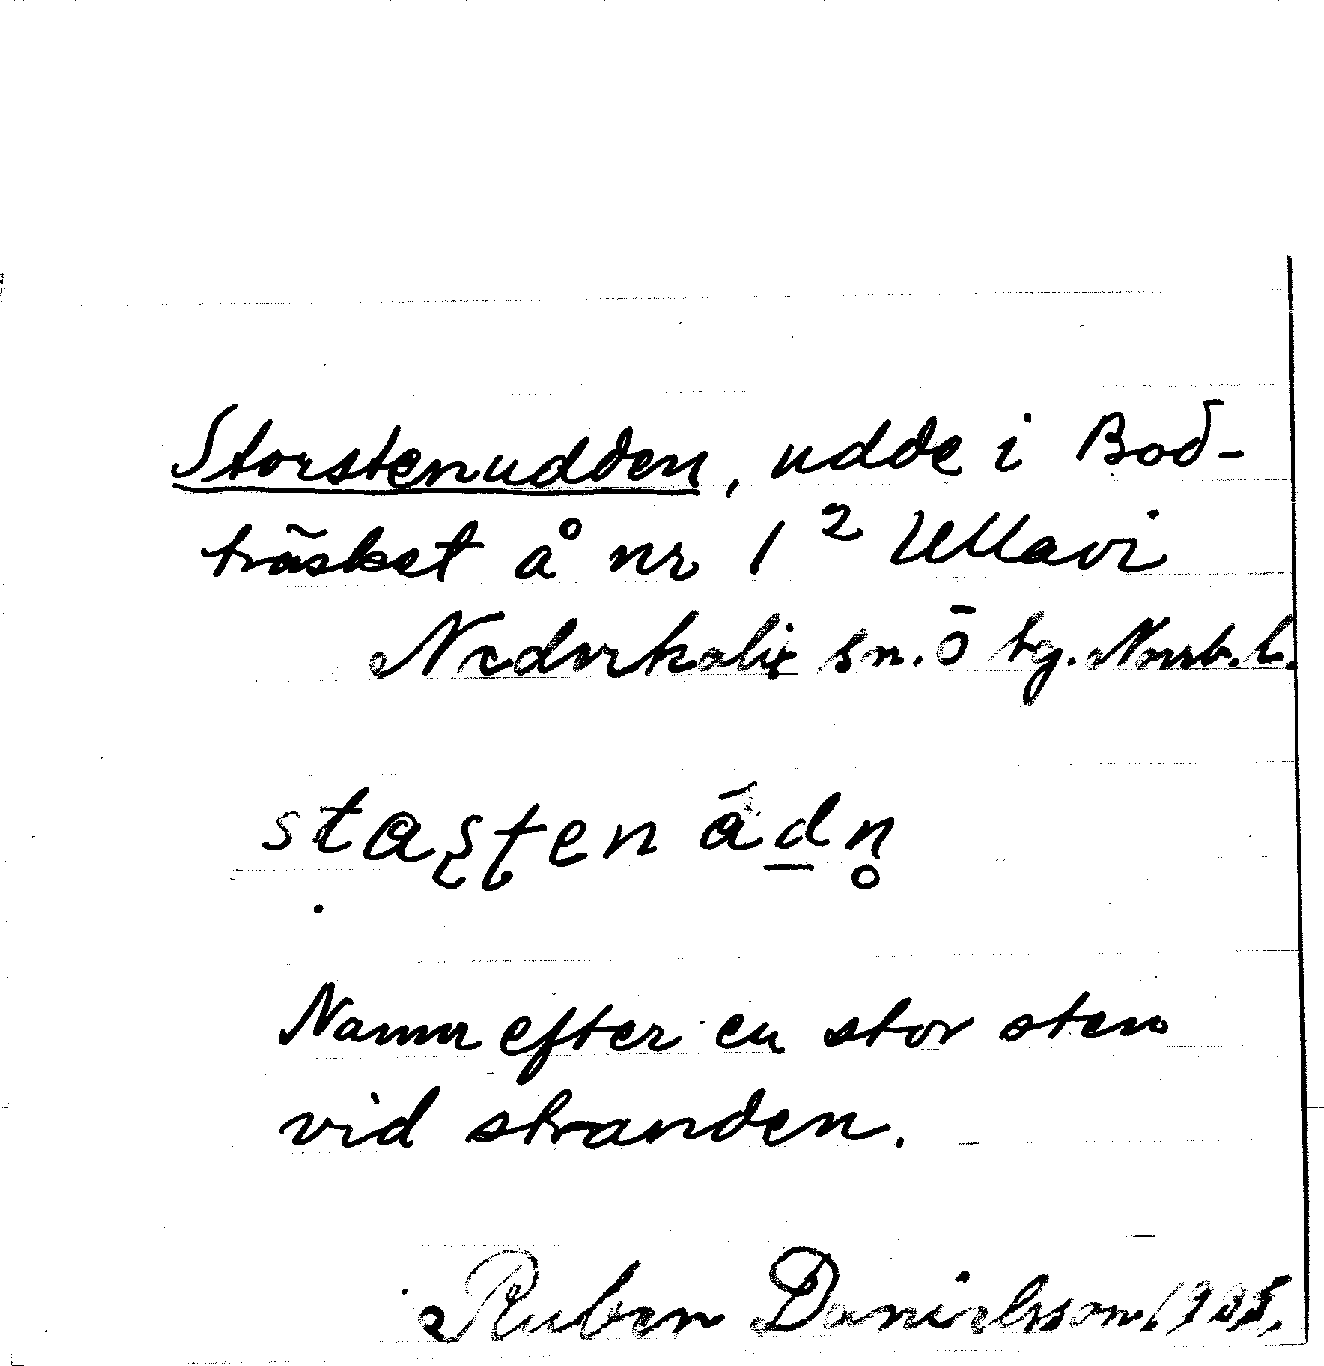 Storstenudden, udde i Bod-
träsket å nr 1² Ullavi
Nederkalix sn. Ö hg. Norrb. l.
stasten ådn̥
Namn efter en stor sten
vid stranden.
Ruben Danielsson, 1935.